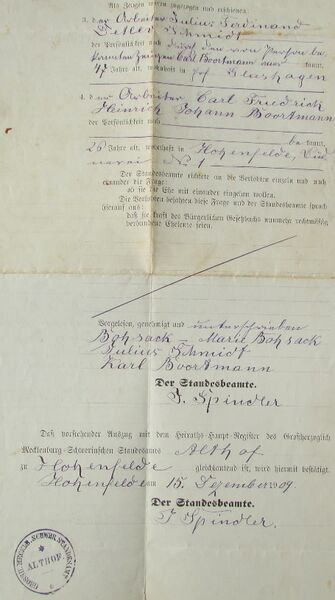 Als Zeugen waren zugezogen und erschienen:
3. der Arbeiter Julius Ferdinand
Detlef Schmidt
der Persönlichkeit nach durch den von Person be-
kannten Zeugen Carl Boortmann aner kannt,
47 Jahre alt, wohnhaft in Hof Glashagen
4. der Arbeiter Carl Friedrich
Heinrich Johann Boortmann
der Persönlichkeit nach
be kannt,
26 Jahre alt, wohnhaft in Hohenfelde, Büd-
nerei No 1
Der Standesbeamte richtete an die Verlobten einzeln und nach
einander die Frage:
ob sie die Ehe mit einander eingehen wollen.
Die Verlobten bejahten diese Frage und der Standesbeamte sprach
hierauf aus:
daß sie kraft des Bürgerlichen Gesetzbuchs nunmehr rechtmäßig
verbundene Eheleute seien.
Vorgelesen, genehmigt und unterschrieben
Bohsack — Marie Bohsack
Julius Schmidt
Karl Boortmann
Der Standesbeamte.
J. Spindler
Daß vorstehender Auszug mit dem Heiraths-Haupt-Register des Großherzoglich
Mecklenburg-Schwerinschen Standesamts Althof
zu Hohenfelde gleichlautend ist, wird hiermit bestätigt.
Hohenfelde am 15. Dezember 1909.
Der Standesbeamte.
J Spindler.
ALTHOF.